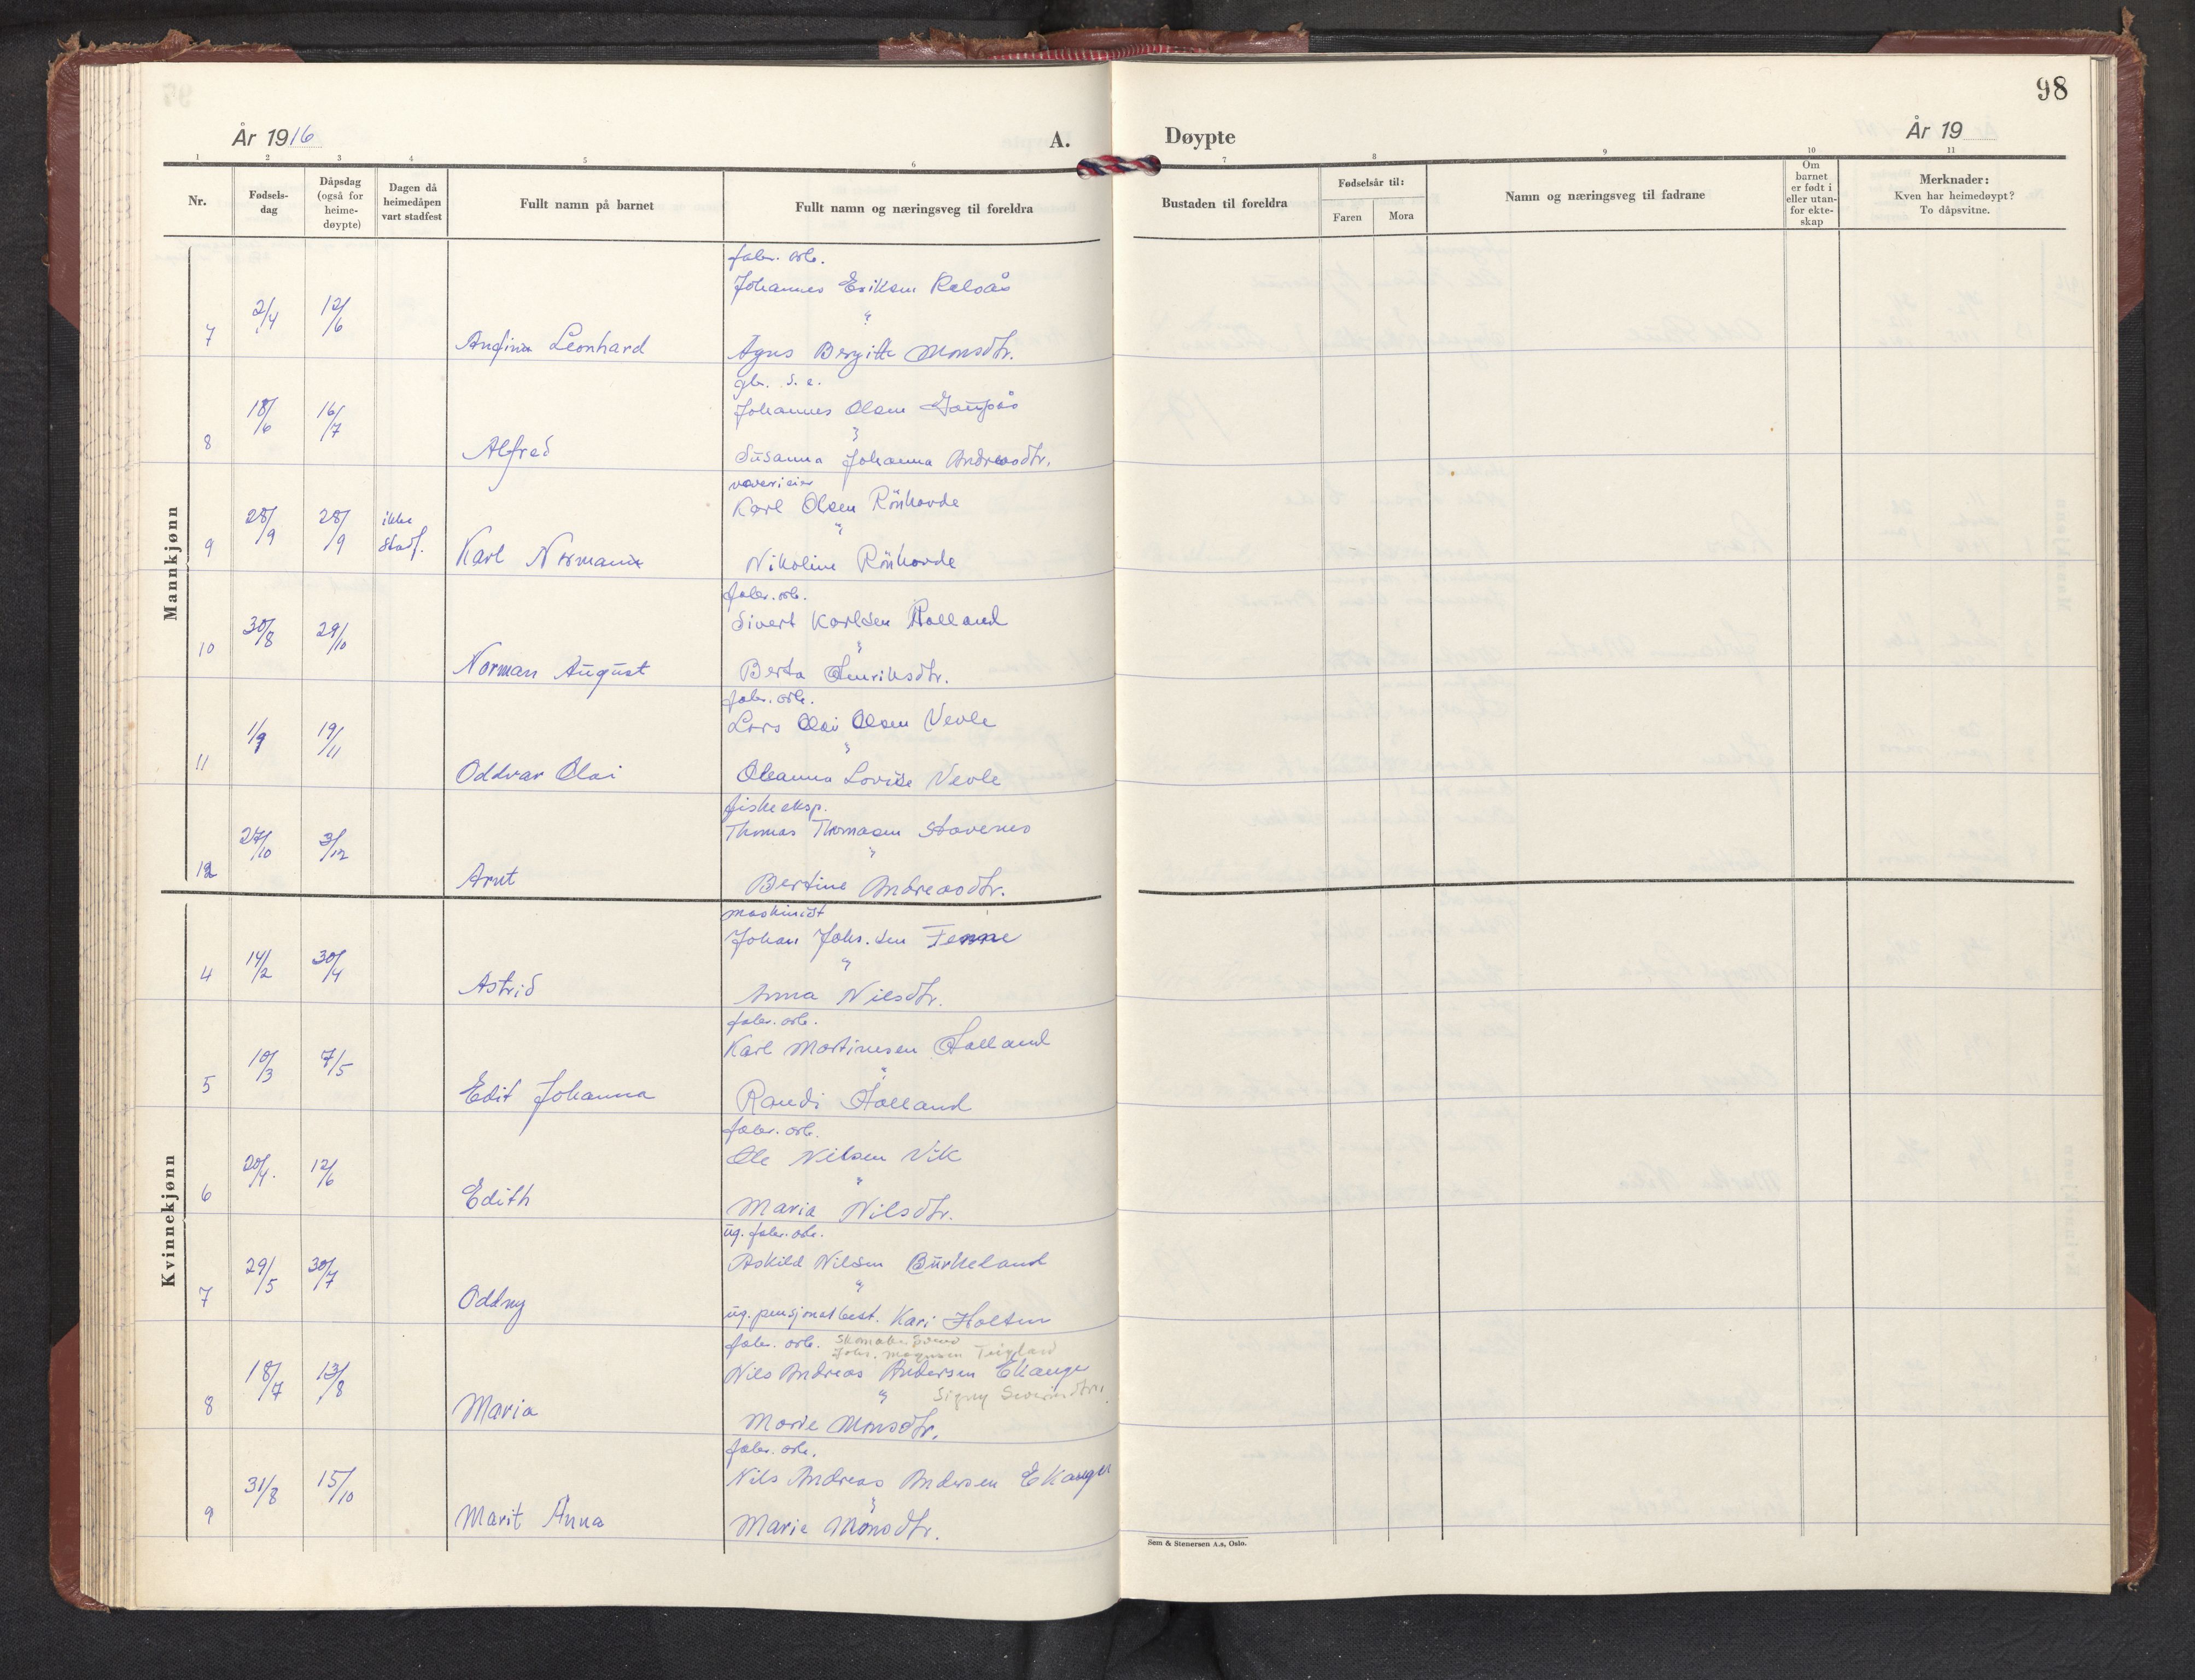 98
År 1916
A.
Døypte
År 19
1 2 3 4 5 6 7 8 9 10 11
Nr.
Fødsels-
dag
Dåpsdag
(også for
heime-
døypte)
Dagen då
heimedåpen
vart stadfest
Fullt namn på barnet
Fullt namn og næringsveg til foreldra
Bustaden til foreldra
Fødselsår til:
Faren
Mora
Namn og næringsveg til fadrane
Om
barnet
er født i
eller utan-
for ekte-
skap
Merknader:
Kven har heimedøypt?
To dåpsvitne.
Mannkjønn
fabr. arb.
Johannes Eriksen
7 2/4 12/6 Leonhard
Agnes Bergitte Monsdtr.
gbr. s. e.
Johannes Olsen Gaupås
8 18/6 16/7 Alfred
Susanna Johanna Andreasdtr.
Karl Olsen Rönhovde
9 28/9 28/9 ikke stadf. Karl Norman
Nikoline Rönhovde
fabr. arb.
Sivert Karlsen Holland
10 30/8 29/10 Norman August
Berta Henriksdtr.
fabr. arb.
Lars Olai Olsen Vevle
11 1/9 19/11 Oddvar Olai
Oleanna Lovise Vevle
fiskeeksp.
Thomas Thomasen Stavenes
12 27/10 3/12 Arnt
Bertine Andreasdtr.
Kvinnekjønn
maskinist
Johan Johs.sen Fenne
4 14/2 30/4 Astrid
Anna Nilsdtr.
fabr. arb.
Karl Martinusen Holland
5 10/3 7/5 Edit Johanna
Randi Holland
fabr. arb.
Ole Nilsen Vik
6 20/4. 12/6 Edith
Maria Nilsdtr.
ug. fabr. arb.
Askild Nilsen Burkeland
7 29/5 30/7 Oddny
ug. pensjonatbest. Kari Holten
fabr. arb. Skomaker
Johs. Magnusen
Nils Andreas Andersen Ekanger
Signy Severinsdtr.
8 18/7 13/8 Maria
Marie Monsdtr.
fabr. arb.
Nils Andreas Andersen Ekanger
9 31/8 15/10 Marit Anna
Marie Monsdtr.
Sem & Stenersen A.s, Oslo.